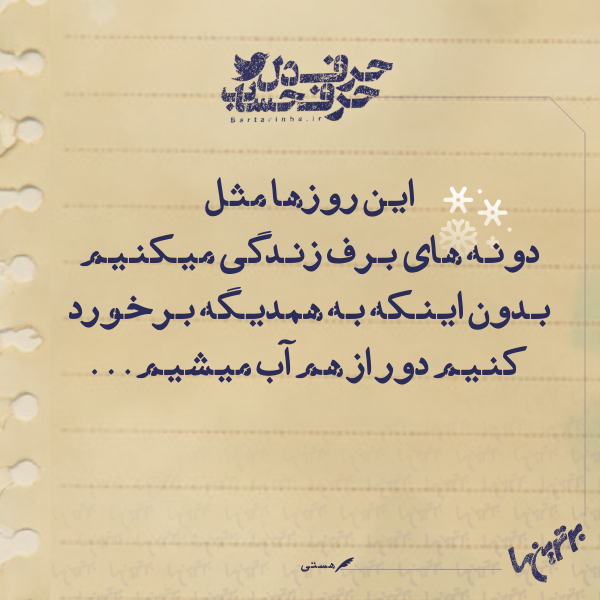 حرف دل
حرف حساب
Bartarinha.ir
این روزها مثل
دونه های برف زندگی میکنیم
بدون اینکه به همدیگه برخورد
کنیم دور از هم آب میشیم...
هستی
برترین‌ها